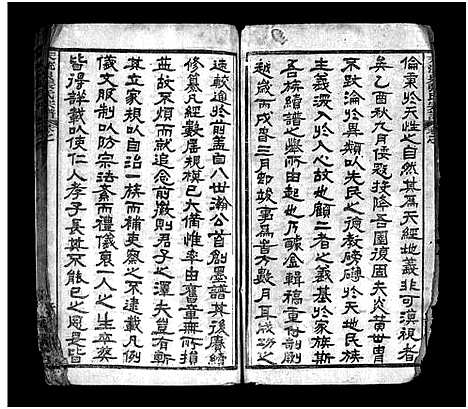 倫秉於天性之自然其為天經地義非可漠視者
矣乙酉秋九月倭毀投降吾國復國夫炎黃世胄
不致淪喪實賴以先民之德教磅礡於天地民族
主義浸入於人心故也顧二者之義基於家族斯
吾族續譜之舉所由起也乃醵金輯稿重付剞劂
越歲丙戌春三月即竣事為書大數月耳成功之
速較逾於前蓋自八世瀚公首創墨譜其後賡續
修纂凡經數屆規模已大備惟率由舊章無所損
益故不煩而就前徽則君子之澤夫豈有斬
其立家規以自治一族而補吏察之不逮載凡例
儀文服制以防宗法紊而禮儀衰一人之生卒葬
皆得詳載以使仁人孝子長其不已之思是皆